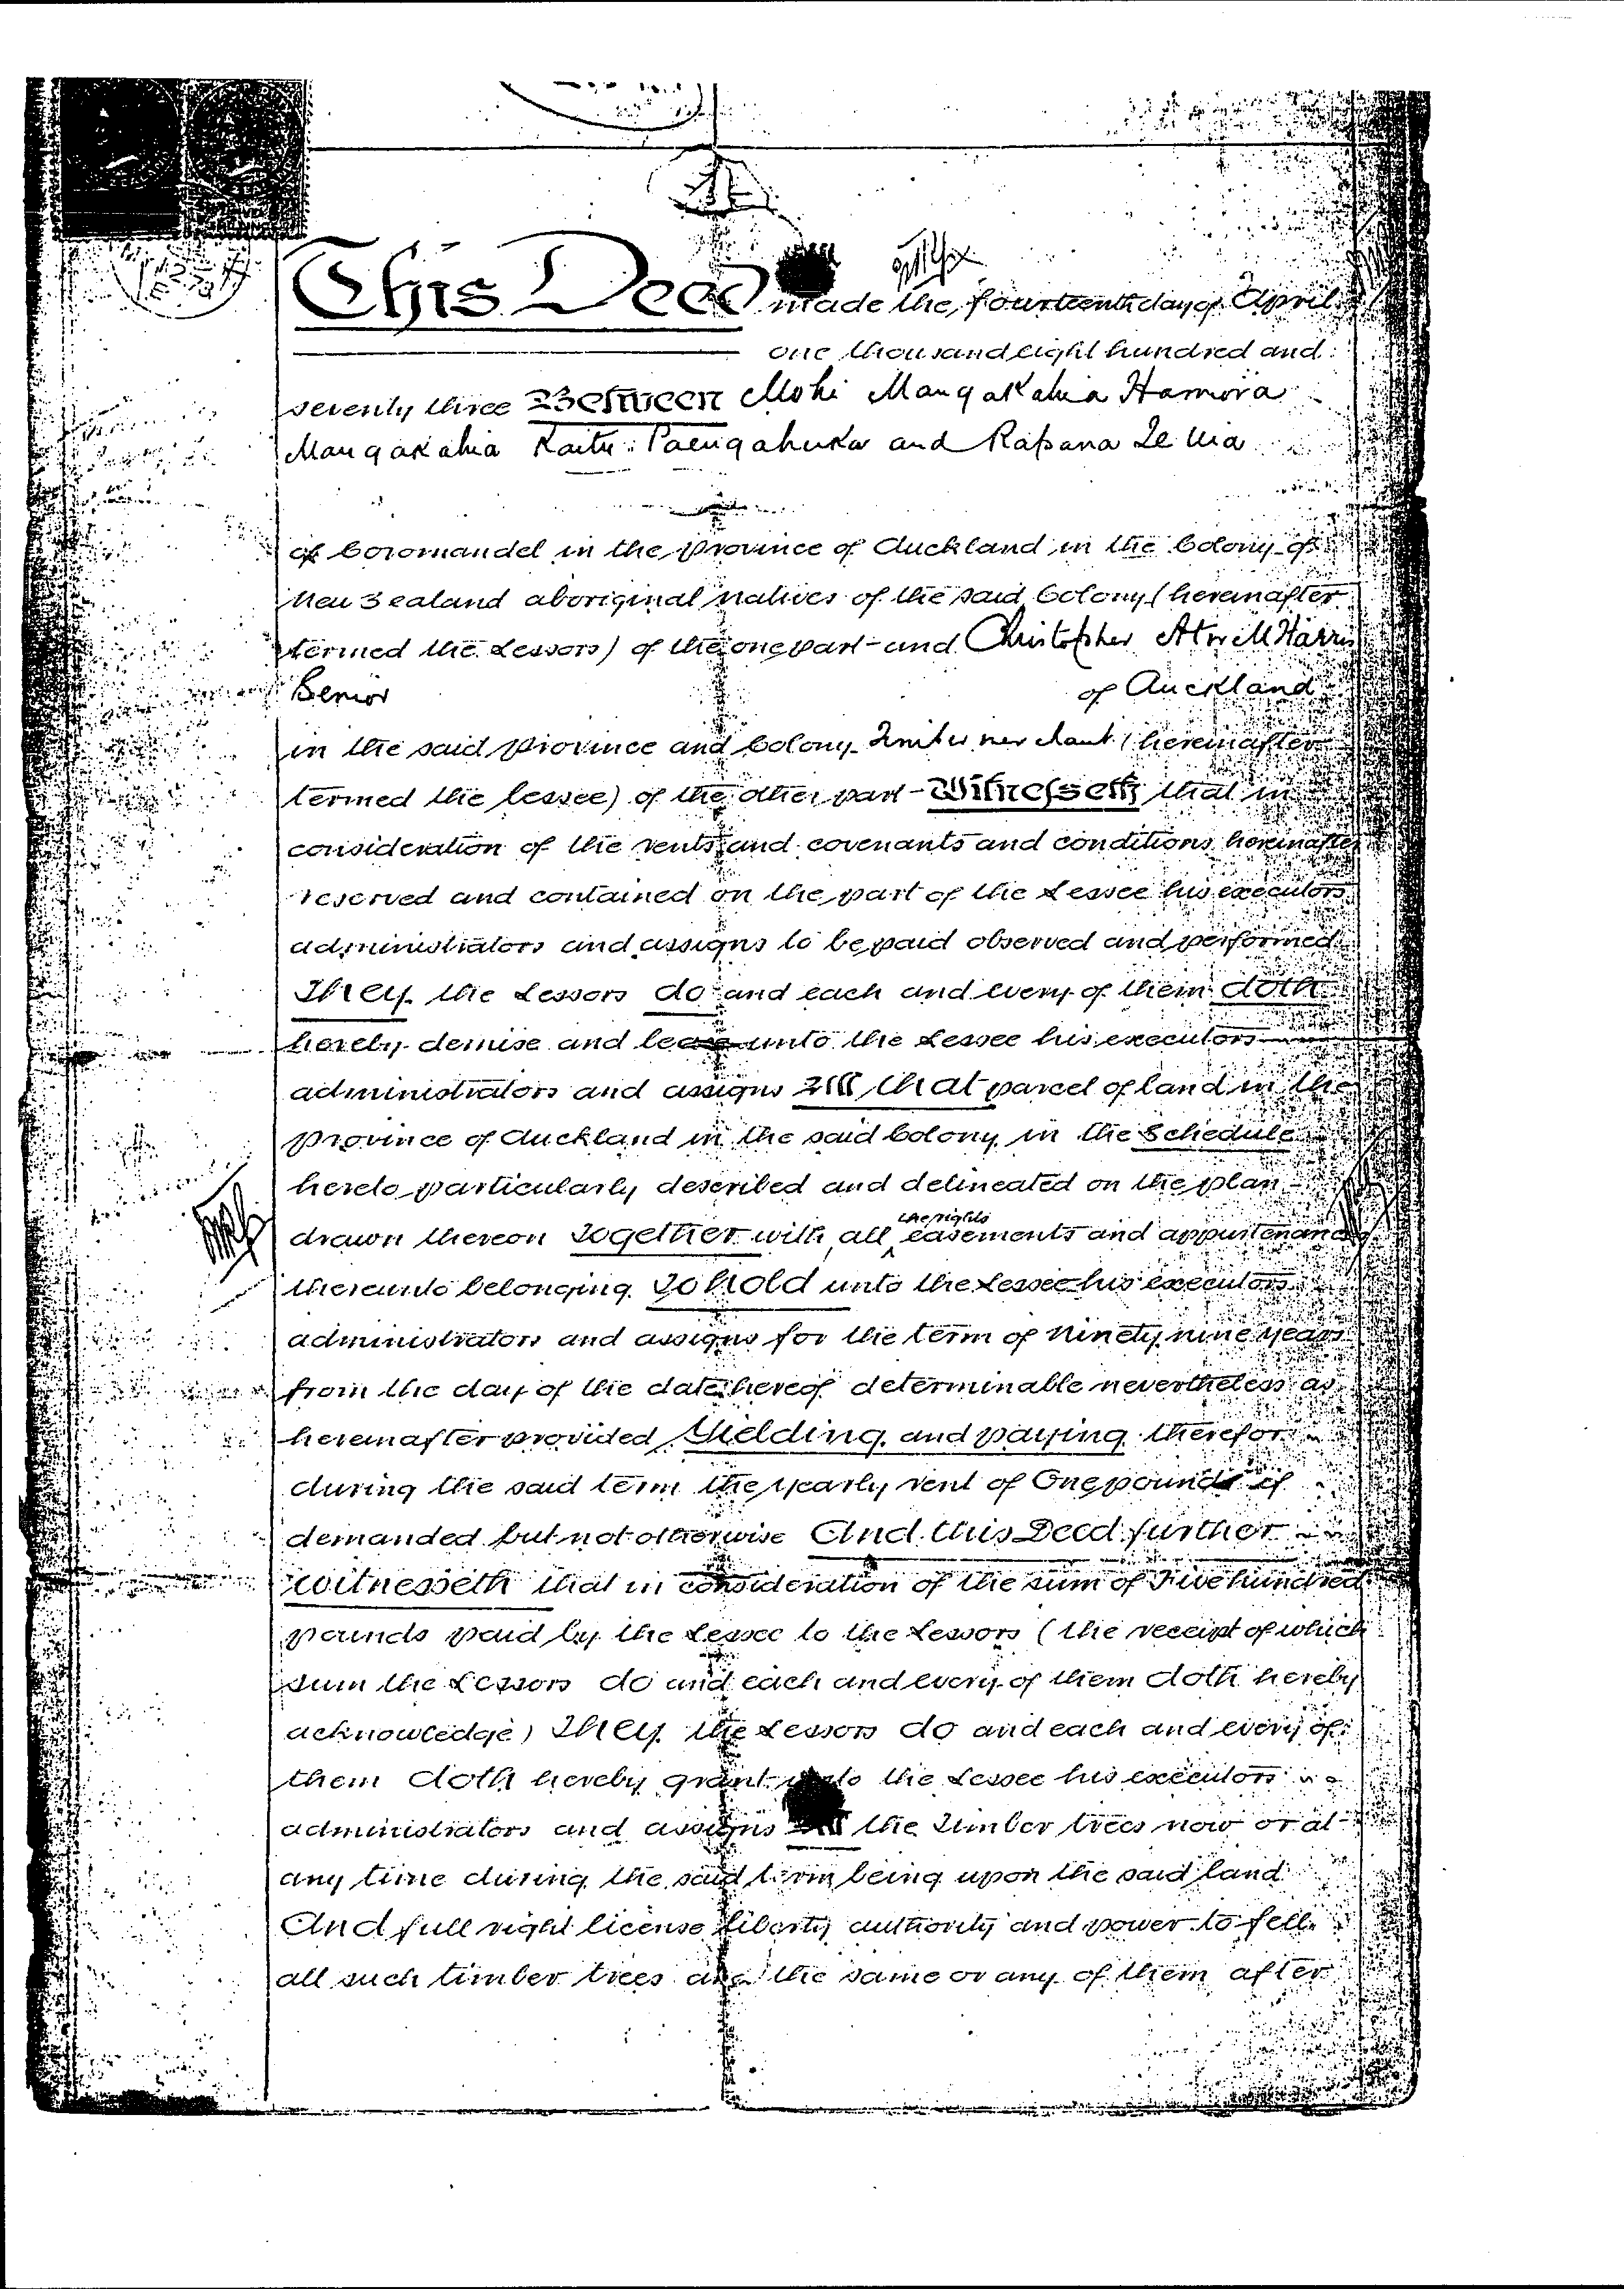 This Deed made the fourteenth day of April
one thousand eight hundred and
seventy three Between Mohi Mangakahia Hamora
Mangakahia Raitu Paengahuka and Rapana Te Uia
of Coromandel in the province of Auckland in the Colony of
New Zealand aboriginal natives of the said Colony (hereinafter
termed the Lessors) of the one part - and Christopher Atwell Harris
Senior of Auckland
in the said province and Colony Timber merchant (hereinafter
termed the lessee) of the other part - Witnesseth that in
consideration of the rents and covenants and conditions hereinafter
reserved and contained on the part of the Lessee his executors
administrators and assigns to be paid observed and performed
They the Lessors do and each and every of them doth
hereby demise and lease unto the Lessee his executors
administrators and assigns All that parcel of land in the
province of Auckland in the said Colony in the Schedule
hereto particularly described and delineated on the plan
drawn thereon Together with all the rights easements and appurtenances
thereunto belonging To hold unto the Lessee his executors
administrators and assigns for the term of Ninety nine years
from the day of the date hereof determinable nevertheless as
hereinafter provided Yielding and paying therefor
during the said term the yearly rent of One pound if
demanded but not otherwise And this Deed further
witnesseth that in consideration of the sum of Five hundred
pounds paid by the Lessee to the Lessors (the receipt of which
sum the Lessors do and each and every of them doth hereby
acknowledge) They the Lessors do and each and every of
them doth hereby grant unto the Lessee his executors
administrators and assigns All the Timber trees now or at
any time during the said term being upon the said land
And full right license liberty authority and power to fell
all such timber trees and the same or any of them after